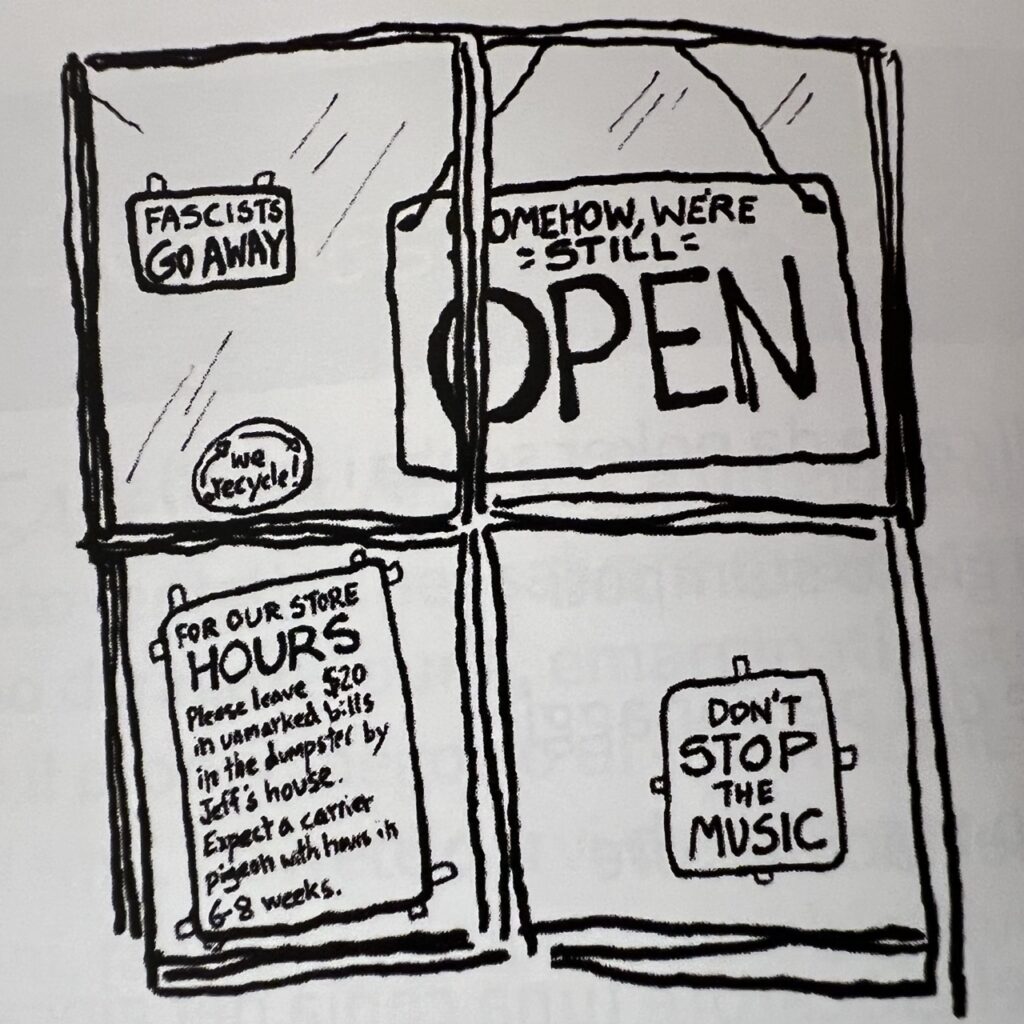 FASCISTS
GO AWAY
SOMEHOW, WE'RE
STILL
OPEN
we
recycle!
FOR OUR STORE
HOURS
Please leave $20
in unmarked bills
in the dumpster by
Jeff's house.
Expect a carrier
pigeon with hours in
6-8 weeks.
DON'T
STOP
THE
MUSIC